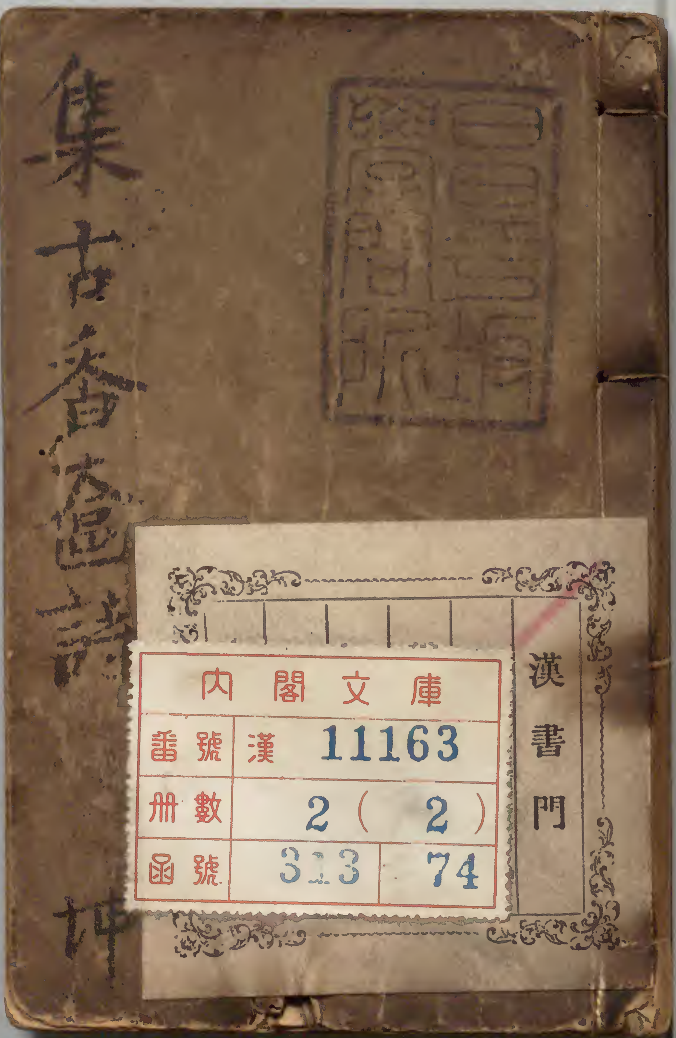 昌平坂
學問所
集古香奩詩 坤
漢書門
內閣文庫
番號 漢 11163
冊數 2 ( 2 )
函號 313 74